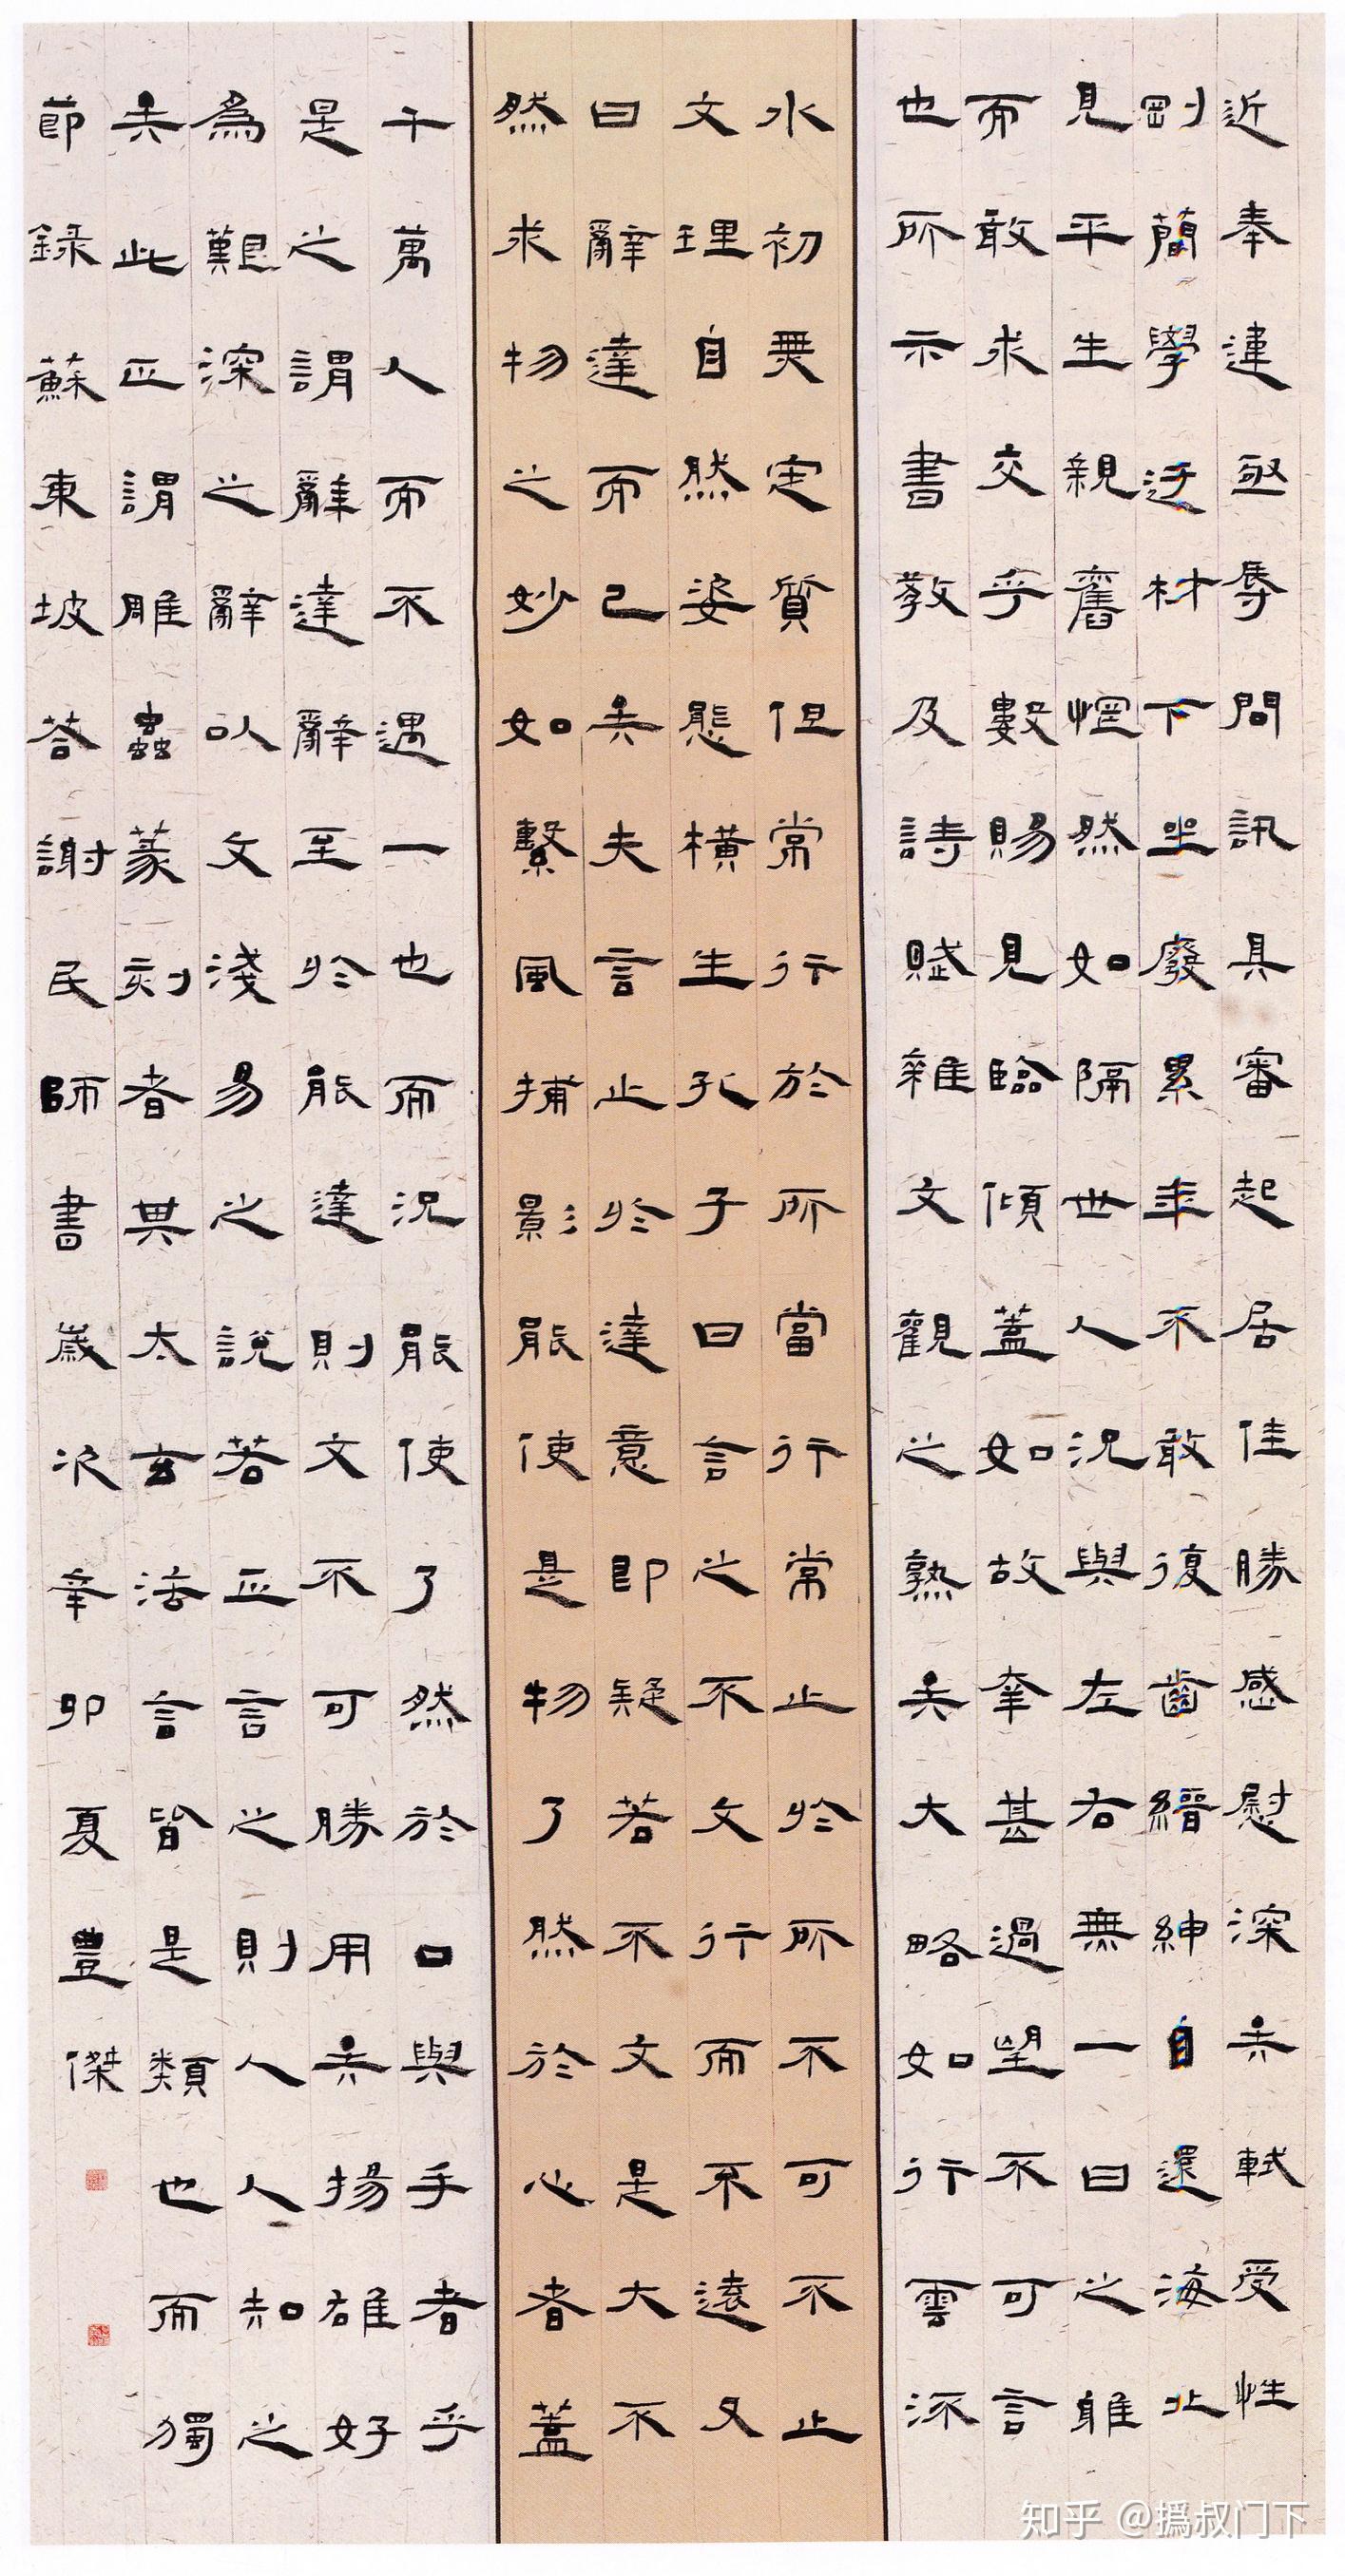 近奉違亟辱問訊具審起居佳勝感慰深矣軾受性
剛簡學迂材下坐廢累年不敢復齒縉紳自還海北
見平生親舊惘然如隔世人況與左右無一日之雅
而敢求交乎數賜見臨傾蓋如故幸甚過望不可言
也所示書教及詩賦雜文觀之熟矣大略如行雲流
水初無定質但常行於所當行常止於所不可不止
文理自然姿態橫生孔子曰言之不文行而不遠又
曰辭達而已矣夫言止於達意即疑若不文是大不
然求物之妙如繫風捕影能使是物了然於心者蓋
千萬人而不遇一也而況能使了然於口與手者乎
是之謂辭達辭至於能達則文不可勝用矣揚雄好
為艱深之辭以文淺易之說若正言之則人人知之
矣此正謂雕蟲篆刻者其太玄法言皆是類也而獨
節錄蘇東坡答謝民師書歲次辛卯夏豊傑
知乎 @撝叔门下